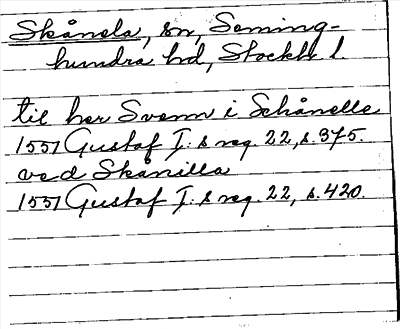 Skånela, sn, Seming-
hundra hd, Stockh. l.
til her Svenn i Schånelle
1551 Gustaf I:s reg. 22, s. 375.
ved Skånilla
1551 Gustaf I:s reg. 22, s. 420.